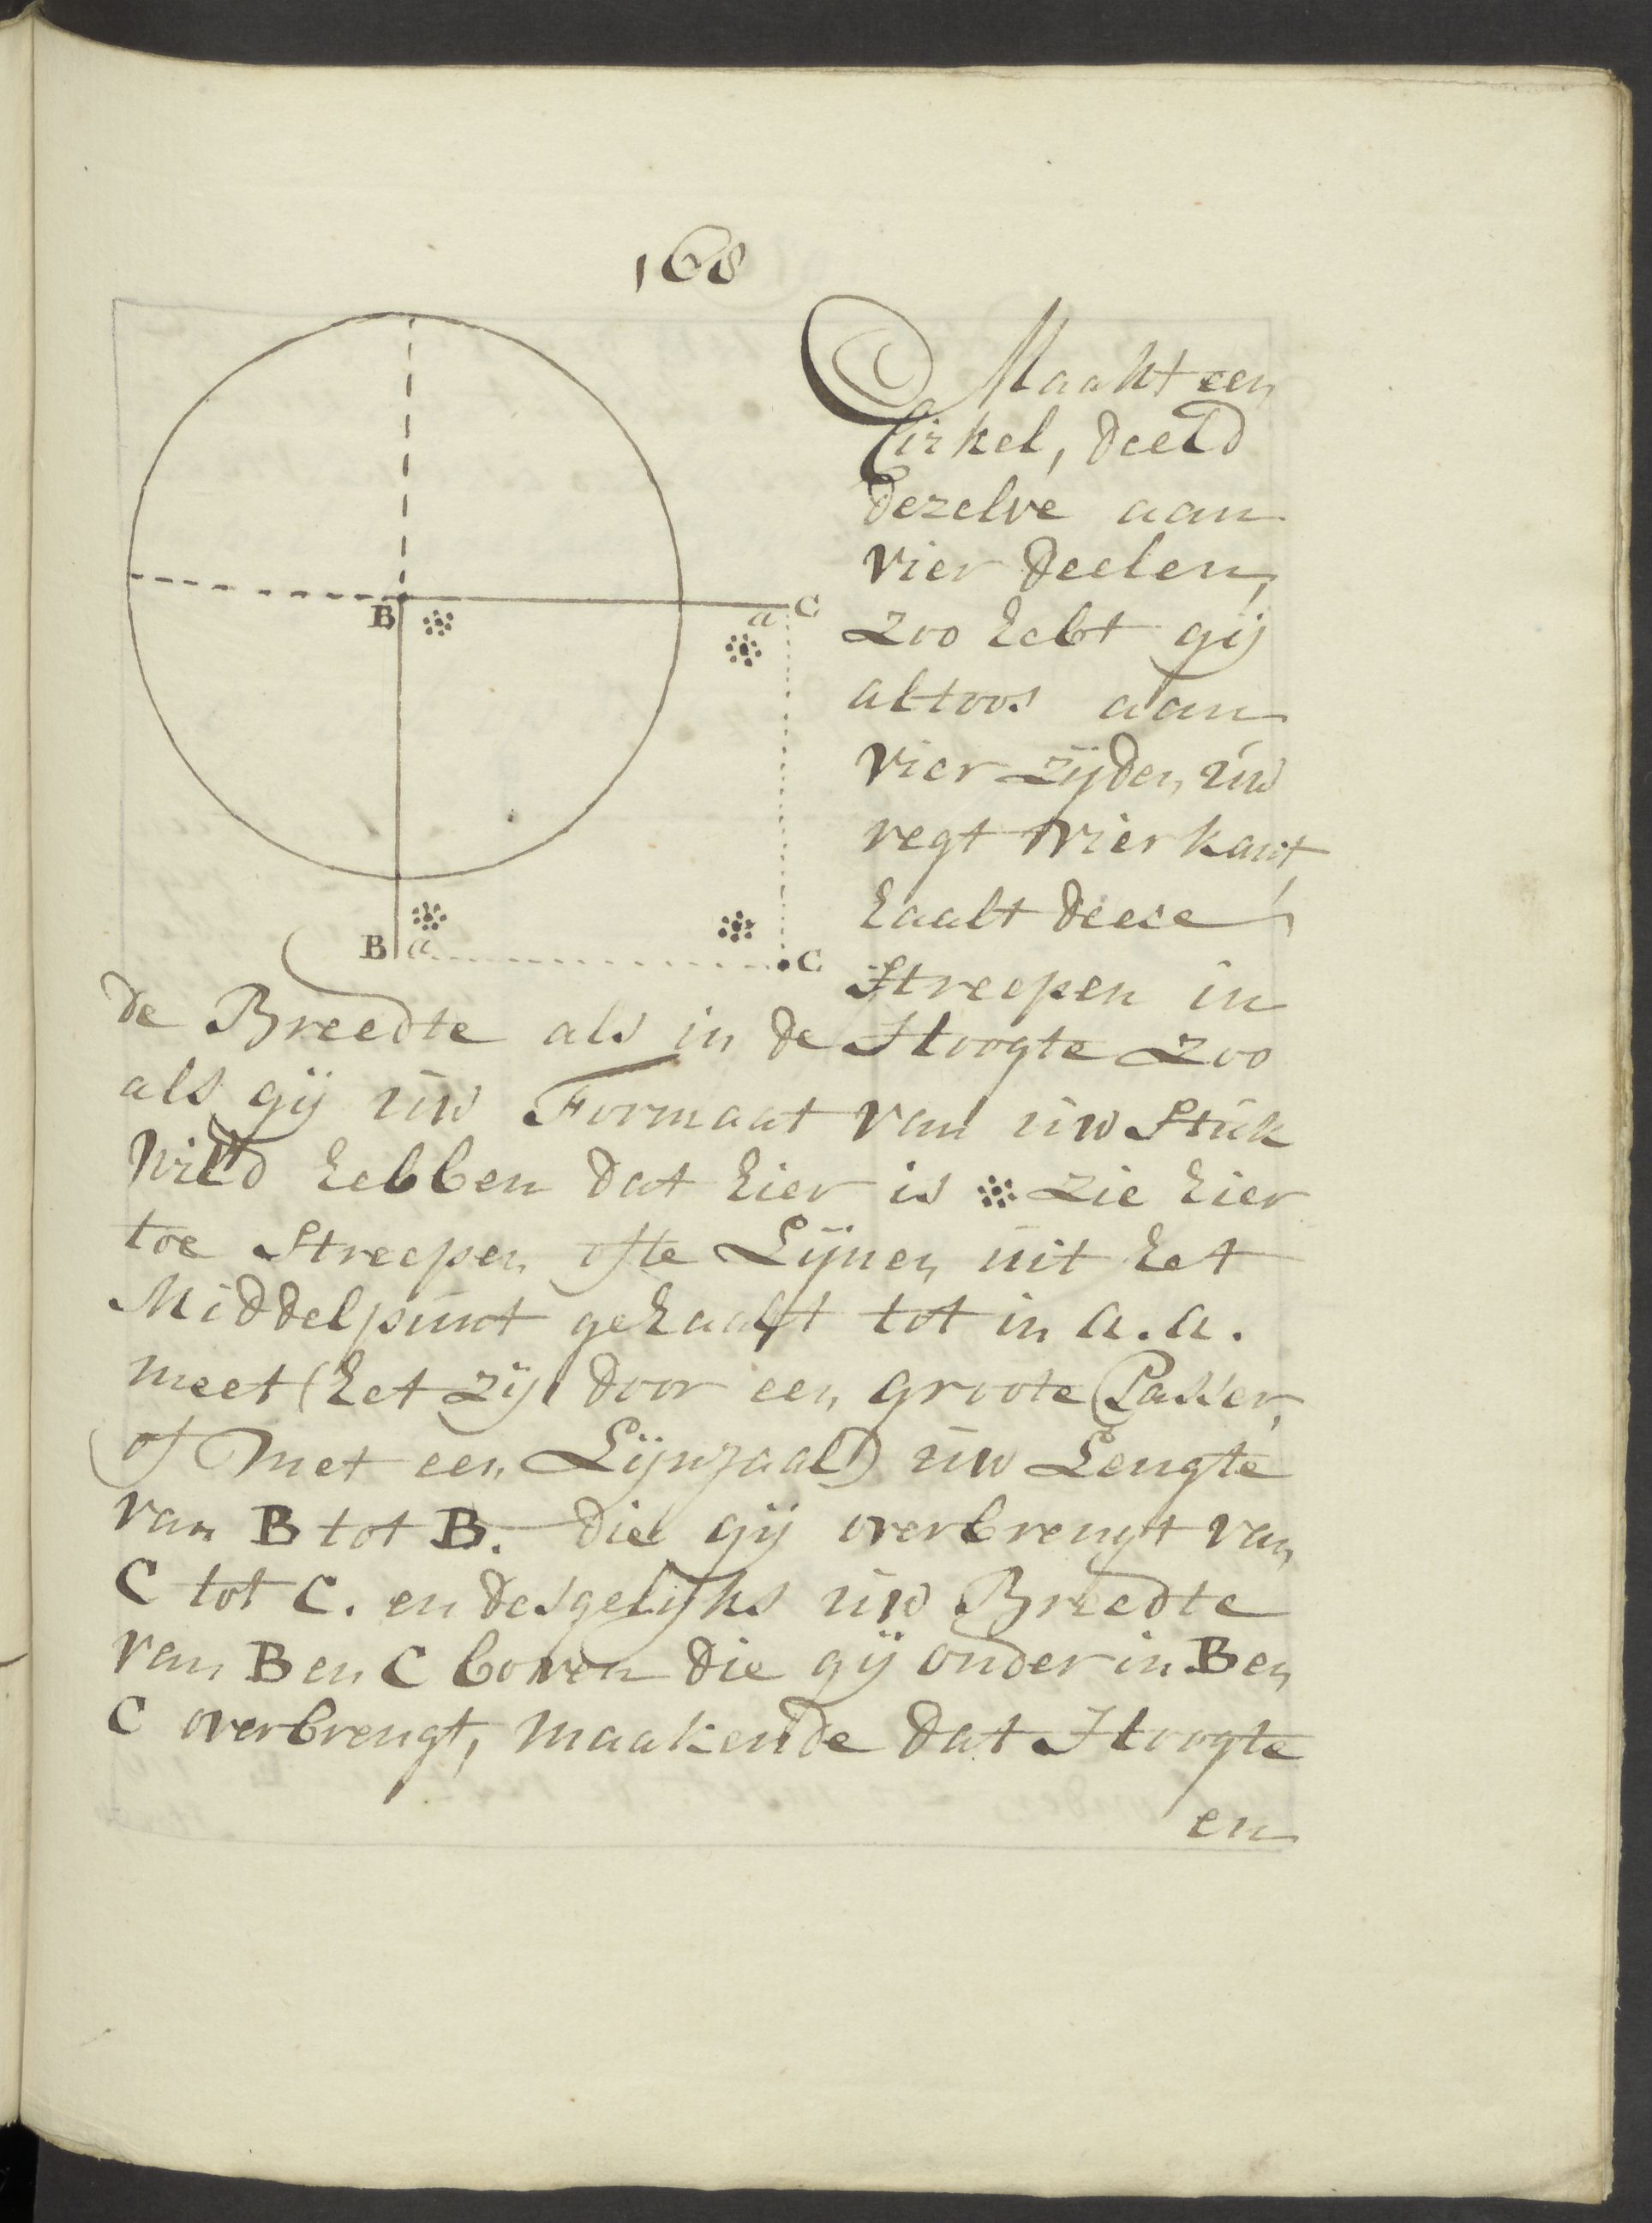 168
Maakt een
Cirkel, deeld
dezelve aan
vier deelen,
zoo hebt gij
altoos aan
vier zijden, uw
regt vierkant,
haalt deese
Streepen in
B
a C
B a
C
de Breedte als in de Hoogte zoo
als gij uw Formaat van uw Stuk
wild hebben dat hier is zie hier
toe Streepen ofte Lijnen uit het
Middelpunt gehaalt tot in a. a.
meet (het zij door een groote Passer,
of met een Lijnzaal) uw Lengte
van B tot B. die gij overbrengt van
C tot C. en desgelijks uw Breedte
van B en C boven die gij onder in B en
C overbrengt, maakende dat Hoogte
en